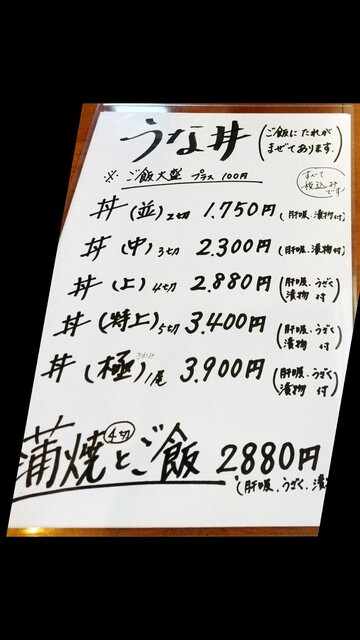 うな丼 (ご飯にたれが
まぜてあります。)
※ ご飯大盛 プラス 100円
すべて
税込み
です!
丼 (並) 2切 1.750円 (肝吸、漬物付)
丼 (中) 3切 2.300円 (肝吸、漬物付)
丼 (上) 4切 2.880円 (肝吸、うざく
漬物 付)
丼 (特上) 5切 3.400円 (肝吸、うざく
漬物 付)
丼 (極) 1尾 3.900円 (肝吸、うざく
漬物 付)
4切
蒲焼とご飯 2880円
(肝吸、うざく、漬物